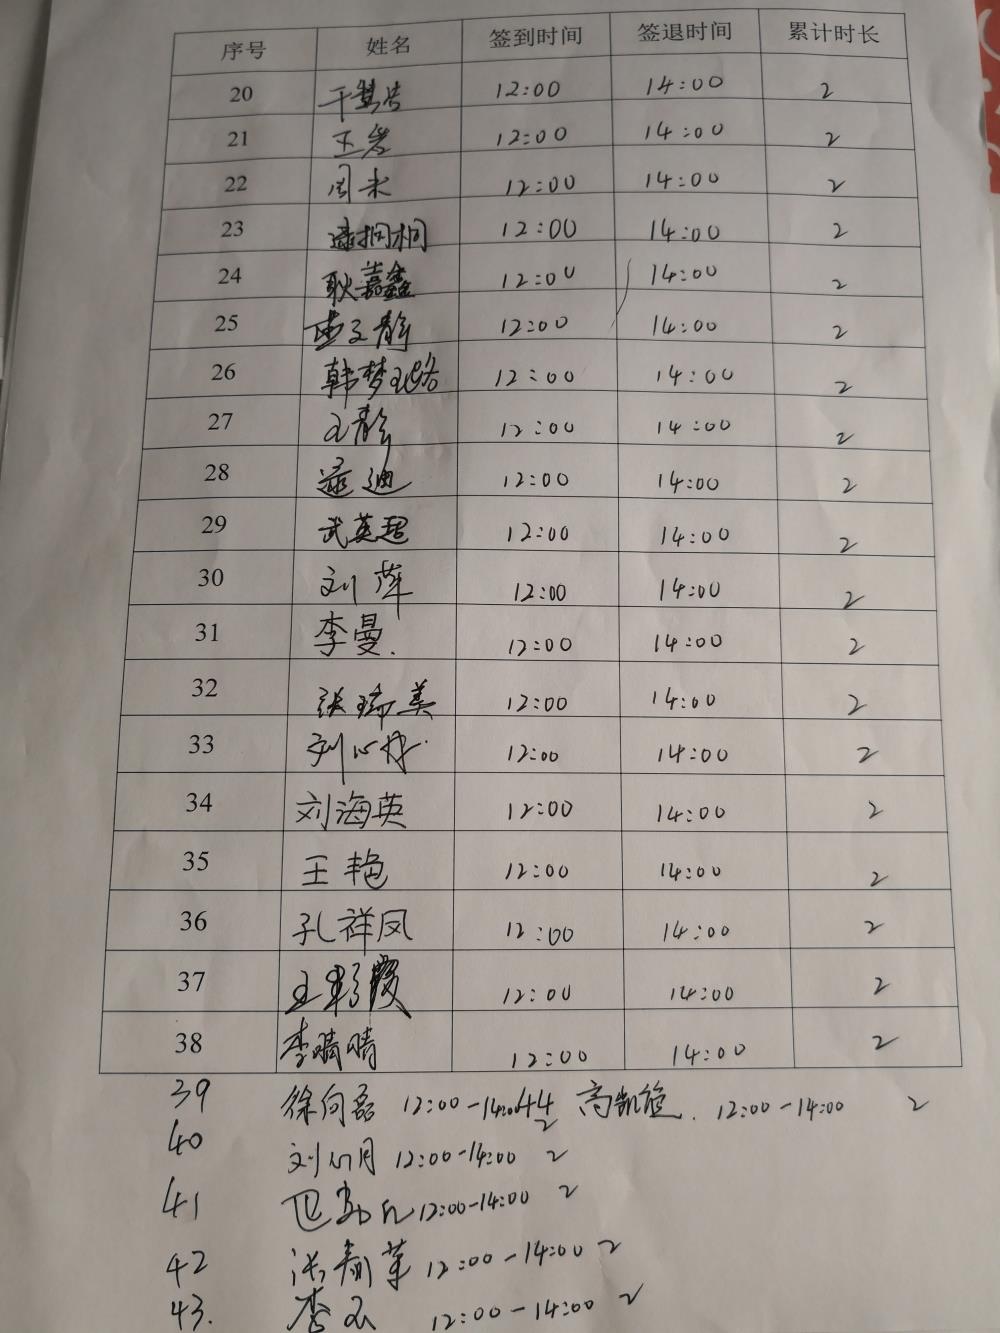 序号 姓名 签到时间 签退时间 累计时长
20 12:00 14:00 2
21 王岩 12:00 14:00 2
22 周末 12:00 14:00 2
23 逯桐桐 12:00 14:00 2
24 耿嘉鑫 12:00 14:00 2
25 文静 12:00 14:00 2
26 韩梦璐 12:00 14:00 2
27 王静 12:00 14:00 2
28 逯迪 12:00 14:00 2
29 武英超 12:00 14:00 2
30 刘萍 12:00 14:00 2
31 李曼. 12:00 14:00 2
32 张瑞美 12:00 14:00 2
33 刘心 12:00 14:00 2
34 刘海英 12:00 14:00 2
35 王艳 12:00 14:00 2
36 孔祥凤 12:00 14:00 2
37 王彩霞 12:00 14:00 2
38 李晴晴 12:00 14:00 2
39 徐向磊 12:00-14:00 2 44 高凯旋. 12:00-14:00 2
40 刘明月 12:00-14:00 2
41 12:00-14:00 2
42 张 12:00-14:00 2
43. 李 12:00-14:00 2